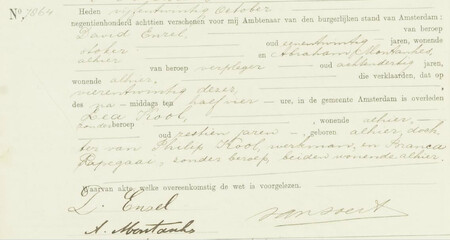 No 7864
Heden vijfentwintig October
negentienhonderd achttien verschenen voor mij Ambtenaar van den burgerlijken stand van Amsterdam:
David Ensel, van beroep
stoker, oud eenentwintig jaren, wonende
alhier en Abraham Montanhes,
van beroep verpleger oud achtendertig jaren,
wonende alhier, die verklaarden, dat op
vierentwintig dezer,
des na-middags ten half vier ure, in de gemeente Amsterdam is overleden
Lea Kool,
zonder beroep, wonende alhier,
oud zestien jaren, geboren alhier, doch
ter van Philip Kool, werkman, en Branca
Papegaai, zonder beroep, beiden wonende alhier.
Waarvan akte, welke overeenkomstig de wet is voorgelezen.
D. Ensel
A. Montanhes